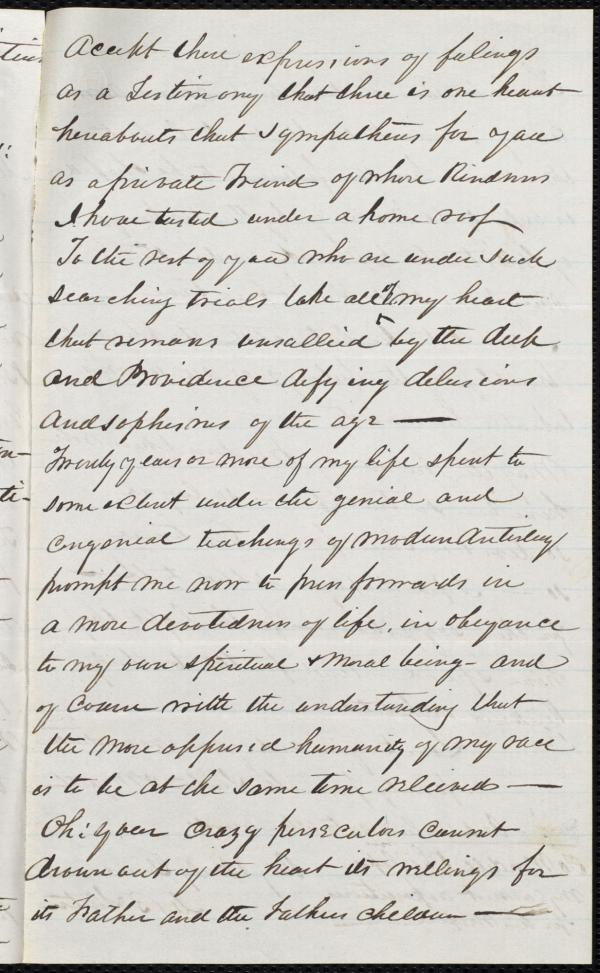 Accept these expressions of feelings
as a Testimony that there is one heart
hereabouts that sympathises for you
as a private Friend of whose Kindness
I have tasted under a home roof
To the rest of you who are under such
searching trials take all of my heart
that remains unsallied by the deep
and Providence defying delusions
and sophisms of the age —
Twenty years or more of my life spent to
some extent under the genial and
congenial teachings of modern Antislavery
prompt me now to press forwards in
a more devotedness of life, in obeyance
to my own spiritual & moral being - and
of course with the understanding that
the more oppressed humanity of my race
is to be at the same time relieved —
Oh! your crazy persecutors cannot
drown out of the heart its wellings for
its Father and the Fathers children —